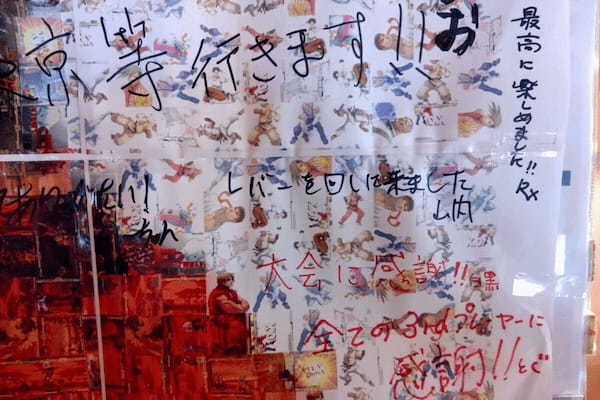 最高に楽しめました!! RX
お
京等行きます!!
ありがたい!
レバーを回しに来ました
山内
大会に感謝!! 黒
全ての3rdプレーヤーに
感謝!! とぐ